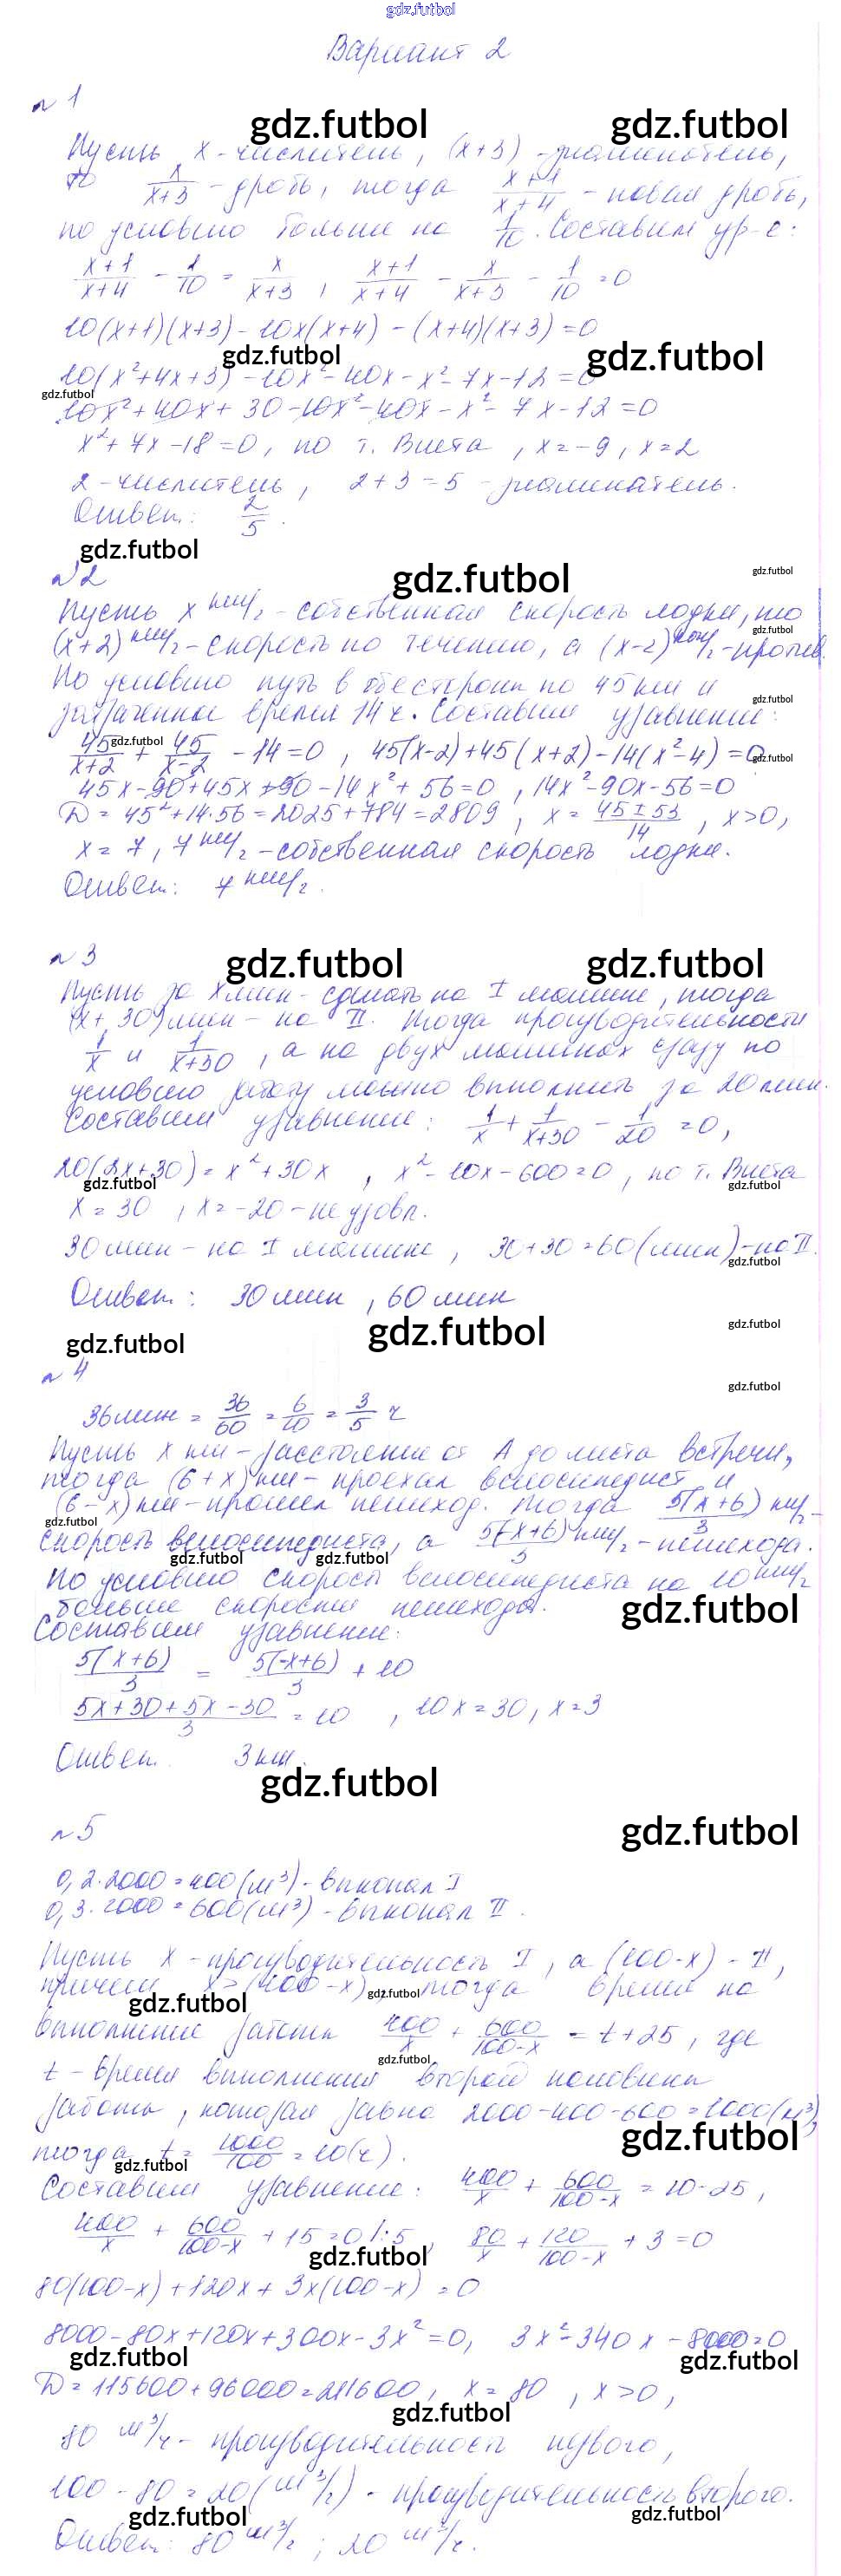 gdz.futbol
Вариант 2
№1
gdz.futbol gdz.futbol
Пусть x - числитель, (x+3) - знаменатель,
то x/(x+3) - дробь, тогда (x+1)/(x+4) - новая дробь,
по условию больше на 1/10. Составим ур-е:
(x+1)/(x+4) - 1/10 = x/(x+3), (x+1)/(x+4) - x/(x+3) - 1/10 = 0
10(x+1)(x+3) - 10x(x+4) - (x+4)(x+3) = 0
gdz.futbol gdz.futbol
10(x²+4x+3) - 10x² - 40x - x² - 7x - 12 = 0
gdz.futbol
10x² + 40x + 30 - 10x² - 40x - x² - 7x - 12 = 0
x² + 7x - 18 = 0, по т. Виета, x = -9, x = 2
2 - числитель, 2+3=5 - знаменатель.
Ответ: 2/5.
gdz.futbol
№2
gdz.futbol gdz.futbol
Пусть x км/ч - собственная скорость лодки, то
gdz.futbol
(x+2) км/ч - скорость по течению, а (x-2) км/ч - против.
По условию путь в обе стороны по 45 км и
gdz.futbol
затраченное время 14 ч. Составим уравнение:
gdz.futbol
45/(x+2) + 45/(x-2) - 14 = 0, 45(x-2) + 45(x+2) - 14(x²-4) = 0
gdz.futbol
45x - 90 + 45x + 90 - 14x² + 56 = 0, 14x² - 90x - 56 = 0
D = 45² + 14·56 = 2025 + 784 = 2809, x = (45 ± 53)/14, x > 0,
x = 7, 7 км/ч - собственная скорость лодки.
Ответ: 7 км/ч.
№3
gdz.futbol gdz.futbol
Пусть за x мин - сделать на I машине, тогда
(x+30) мин - на II. Тогда производительности
1/x и 1/(x+30), а на двух машинах сразу по
условию работу можно выполнить за 20 мин.
Составим уравнение: 1/x + 1/(x+30) - 1/20 = 0,
20(2x+30) = x² + 30x, x² - 10x - 600 = 0, по т. Виета
gdz.futbol gdz.futbol
x = 30, x = -20 - не удовл.
30 мин - на I машине, 30+30=60 (мин) - на II.
gdz.futbol
Ответ: 30 мин, 60 мин
gdz.futbol gdz.futbol gdz.futbol
№4
gdz.futbol
36 мин = 36/60 = 6/10 = 3/5 ч
Пусть x км - расстояние от A до места встречи,
тогда (6+x) км - проехал велосипедист и
(6-x) км - прошел пешеход. Тогда 5(x+6)/3 км/ч -
gdz.futbol
скорость велосипедиста, а 5(-x+6)/3 км/ч - пешехода.
gdz.futbol gdz.futbol
По условию скорость велосипедиста на 10 км/ч
больше скорости пешехода.
gdz.futbol
Составим уравнение:
5(x+6)/3 = 5(-x+6)/3 + 10
(5x+30+5x-30)/3 = 10, 10x = 30, x = 3
Ответ: 3 км.
gdz.futbol
№5
gdz.futbol
0,2·2000=400(м³) - выкопал I
0,3·2000=600(м³) - выкопал II.
Пусть x - производительность I, а (100-x) - II,
причем x > (100-x), тогда время на
gdz.futbol gdz.futbol
выполнение работы 400/x + 600/(100-x) = t+25, где
gdz.futbol
t - время выполнения второй половины
работы, которая равна 2000-400-600=1000(м³),
gdz.futbol
тогда t = 1000/100 = 10(ч).
gdz.futbol
Составим уравнение: 400/x + 600/(100-x) = 10-25,
400/x + 600/(100-x) + 15 = 0 |:5, 80/x + 120/(100-x) + 3 = 0
gdz.futbol
80(100-x) + 120x + 3x(100-x) = 0
8000 - 80x + 120x + 300x - 3x² = 0, 3x² - 340x - 8000 = 0
gdz.futbol gdz.futbol
D = 115600 + 96000 = 211600, x = 80, x > 0,
gdz.futbol
80 м³/ч - производительность первого,
100 - 80 = 20 (м³/ч) - производительность второго.
gdz.futbol gdz.futbol
Ответ: 80 м³/ч; 20 м³/ч.